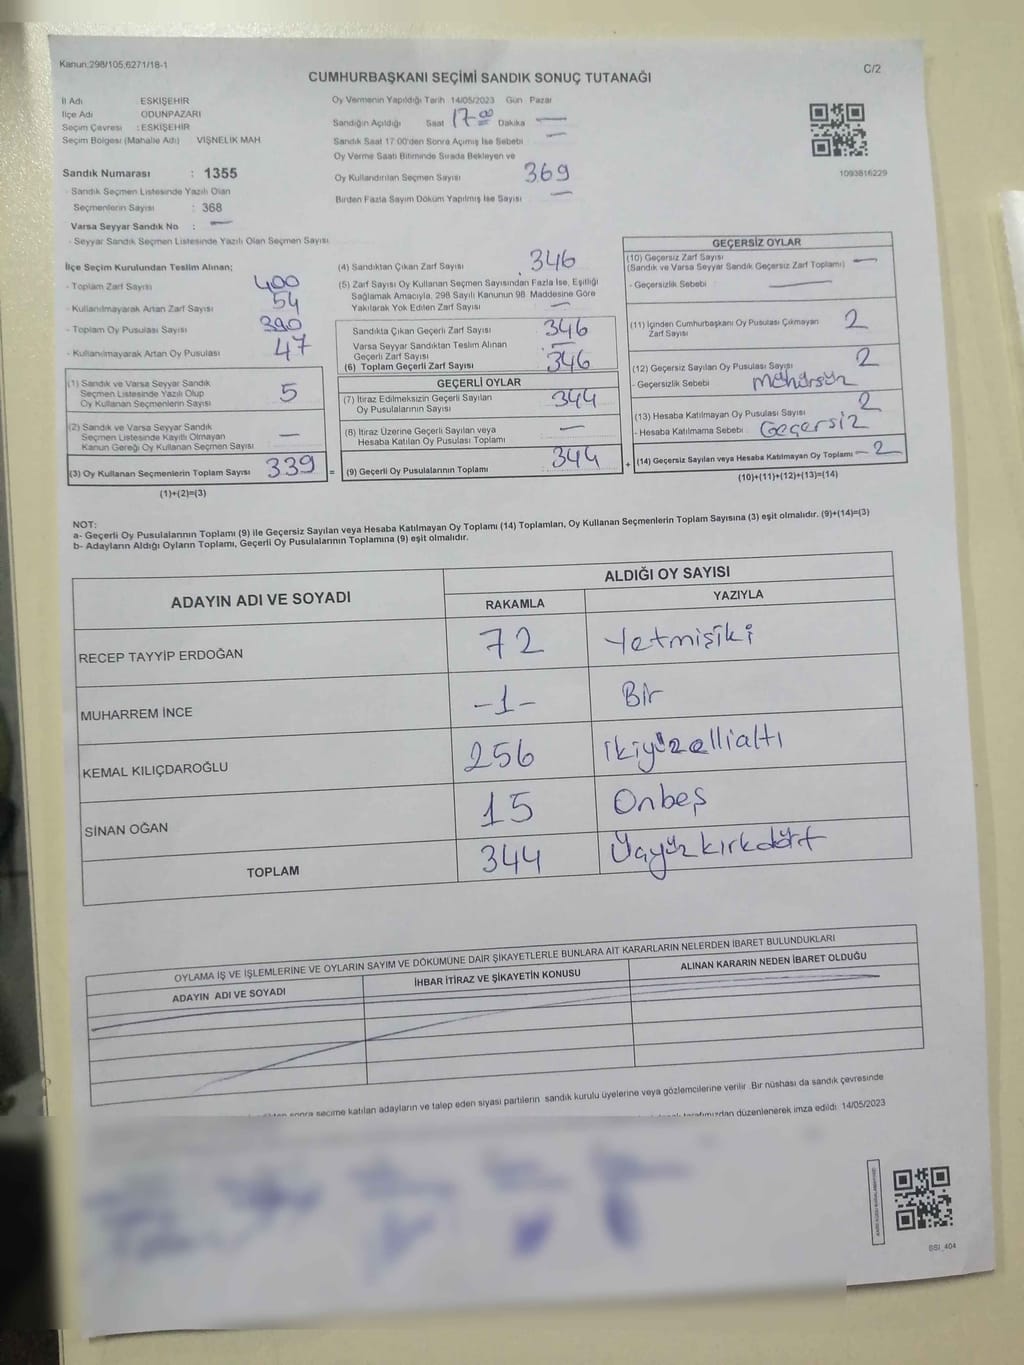 Kanun:298/105,6271/18-1
C/2
CUMHURBAŞKANI SEÇİMİ SANDIK SONUÇ TUTANAĞI
İl Adı ESKİŞEHİR
İlçe Adı ODUNPAZARI
Seçim Çevresi : ESKİŞEHİR
Seçim Bölgesi (Mahalle Adı) VİŞNELİK MAH
Sandık Numarası : 1355
- Sandık Seçmen Listesinde Yazılı Olan
Seçmenlerin Sayısı : 368
Varsa Seyyar Sandık No : —
- Seyyar Sandık Seçmen Listesinde Yazılı Olan Seçmen Sayısı
Oy Vermenin Yapıldığı Tarih 14/05/2023 Gün Pazar
Sandığın Açıldığı Saat 17.00 Dakika —
Sandık Saat 17:00'den Sonra Açımış İse Sebebi —
Oy Verme Saati Bitiminde Sırada Bekleyen ve
Oy Kullandırılan Seçmen Sayısı 369
Birden Fazla Sayım Döküm Yapılmış İse Sayısı —
1093816229
İlçe Seçim Kurulundan Teslim Alınan;
- Toplam Zarf Sayısı 400
- Kullanılmayarak Artan Zarf Sayısı 54
- Toplam Oy Pusulası Sayısı 390
- Kullanılmayarak Artan Oy Pusulası 47
(1) Sandık ve Varsa Seyyar Sandık
Seçmen Listesinde Yazılı Olup
Oy Kullanan Seçmenlerin Sayısı 5
(2) Sandık ve Varsa Seyyar Sandık
Seçmen Listesinde Kayıtlı Olmayan
Kanun Gereği Oy Kullanan Seçmen Sayısı —
(3) Oy Kullanan Seçmenlerin Toplam Sayısı 339 =
(1)+(2)=(3)
(4) Sandıktan Çıkan Zarf Sayısı 346
(5) Zarf Sayısı Oy Kullanan Seçmen Sayısından Fazla İse, Eşitliği
Sağlamak Amacıyla, 298 Sayılı Kanunun 98. Maddesine Göre
Yakılarak Yok Edilen Zarf Sayısı —
Sandıkta Çıkan Geçerli Zarf Sayısı 346
Varsa Seyyar Sandıktan Teslim Alınan
Geçerli Zarf Sayısı —
(6) Toplam Geçerli Zarf Sayısı 346
GEÇERLİ OYLAR
(7) İtiraz Edilmeksizin Geçerli Sayılan
Oy Pusulalarının Sayısı 344
(8) İtiraz Üzerine Geçerli Sayılan veya
Hesaba Katılan Oy Pusulası Toplamı —
(9) Geçerli Oy Pusulalarının Toplamı 344 +
GEÇERSİZ OYLAR
(10) Geçersiz Zarf Sayısı —
(Sandık ve Varsa Seyyar Sandık Geçersiz Zarf Toplamı)
- Geçersizlik Sebebi : —
(11) İçinden Cumhurbaşkanı Oy Pusulası Çıkmayan
Zarf Sayısı 2
(12) Geçersiz Sayılan Oy Pusulası Sayısı 2
- Geçersizlik Sebebi : mühürsüz
(13) Hesaba Katılmayan Oy Pusulası Sayısı 2
- Hesaba Katılmama Sebebi : Geçersiz
(14) Geçersiz Sayılan veya Hesaba Katılmayan Oy Toplamı — 2
(10)+(11)+(12)+(13)=(14)
NOT:
a- Geçerli Oy Pusulalarının Toplamı (9) ile Geçersiz Sayılan veya Hesaba Katılmayan Oy Toplamı (14) Toplamları, Oy Kullanan Seçmenlerin Toplam Sayısına (3) eşit olmalıdır. (9)+(14)=(3)
b- Adayların Aldığı Oyların Toplamı, Geçerli Oy Pusulalarının Toplamına (9) eşit olmalıdır.
ADAYIN ADI VE SOYADI
ALDIĞI OY SAYISI
RAKAMLA YAZIYLA
RECEP TAYYİP ERDOĞAN 72 Yetmişiki
MUHARREM İNCE -1- Bir
KEMAL KILIÇDAROĞLU 256 ikiyüzellialtı
SİNAN OĞAN 15 Onbeş
TOPLAM 344 Üçyüzkırkdört
OYLAMA İŞ VE İŞLEMLERİNE VE OYLARIN SAYIM VE DÖKÜMÜNE DAİR ŞİKAYETLERLE BUNLARA AİT KARARLARIN NELERDEN İBARET BULUNDUKLARI
ADAYIN ADI VE SOYADI İHBAR İTİRAZ VE ŞİKAYETİN KONUSU ALINAN KARARIN NEDEN İBARET OLDUĞU
sonra seçime katılan adayların ve talep eden siyasi partilerin sandık kurulu üyelerine veya gözlemcilerine verilir. Bir nüshası da sandık çevresinde
tarafımızdan düzenlenerek imza edildi. 14/05/2023
BSI_404